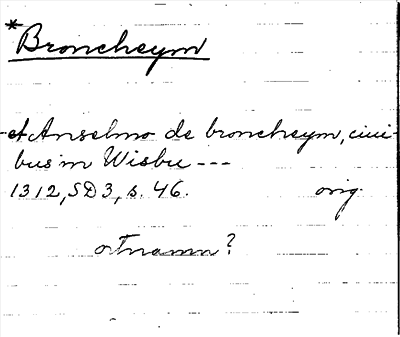 *Broncheym
-et Anselmo de broncheym, ciui-
bus in Wisbu ---
1312, SD 3, s. 46. orig.
ortnamn?